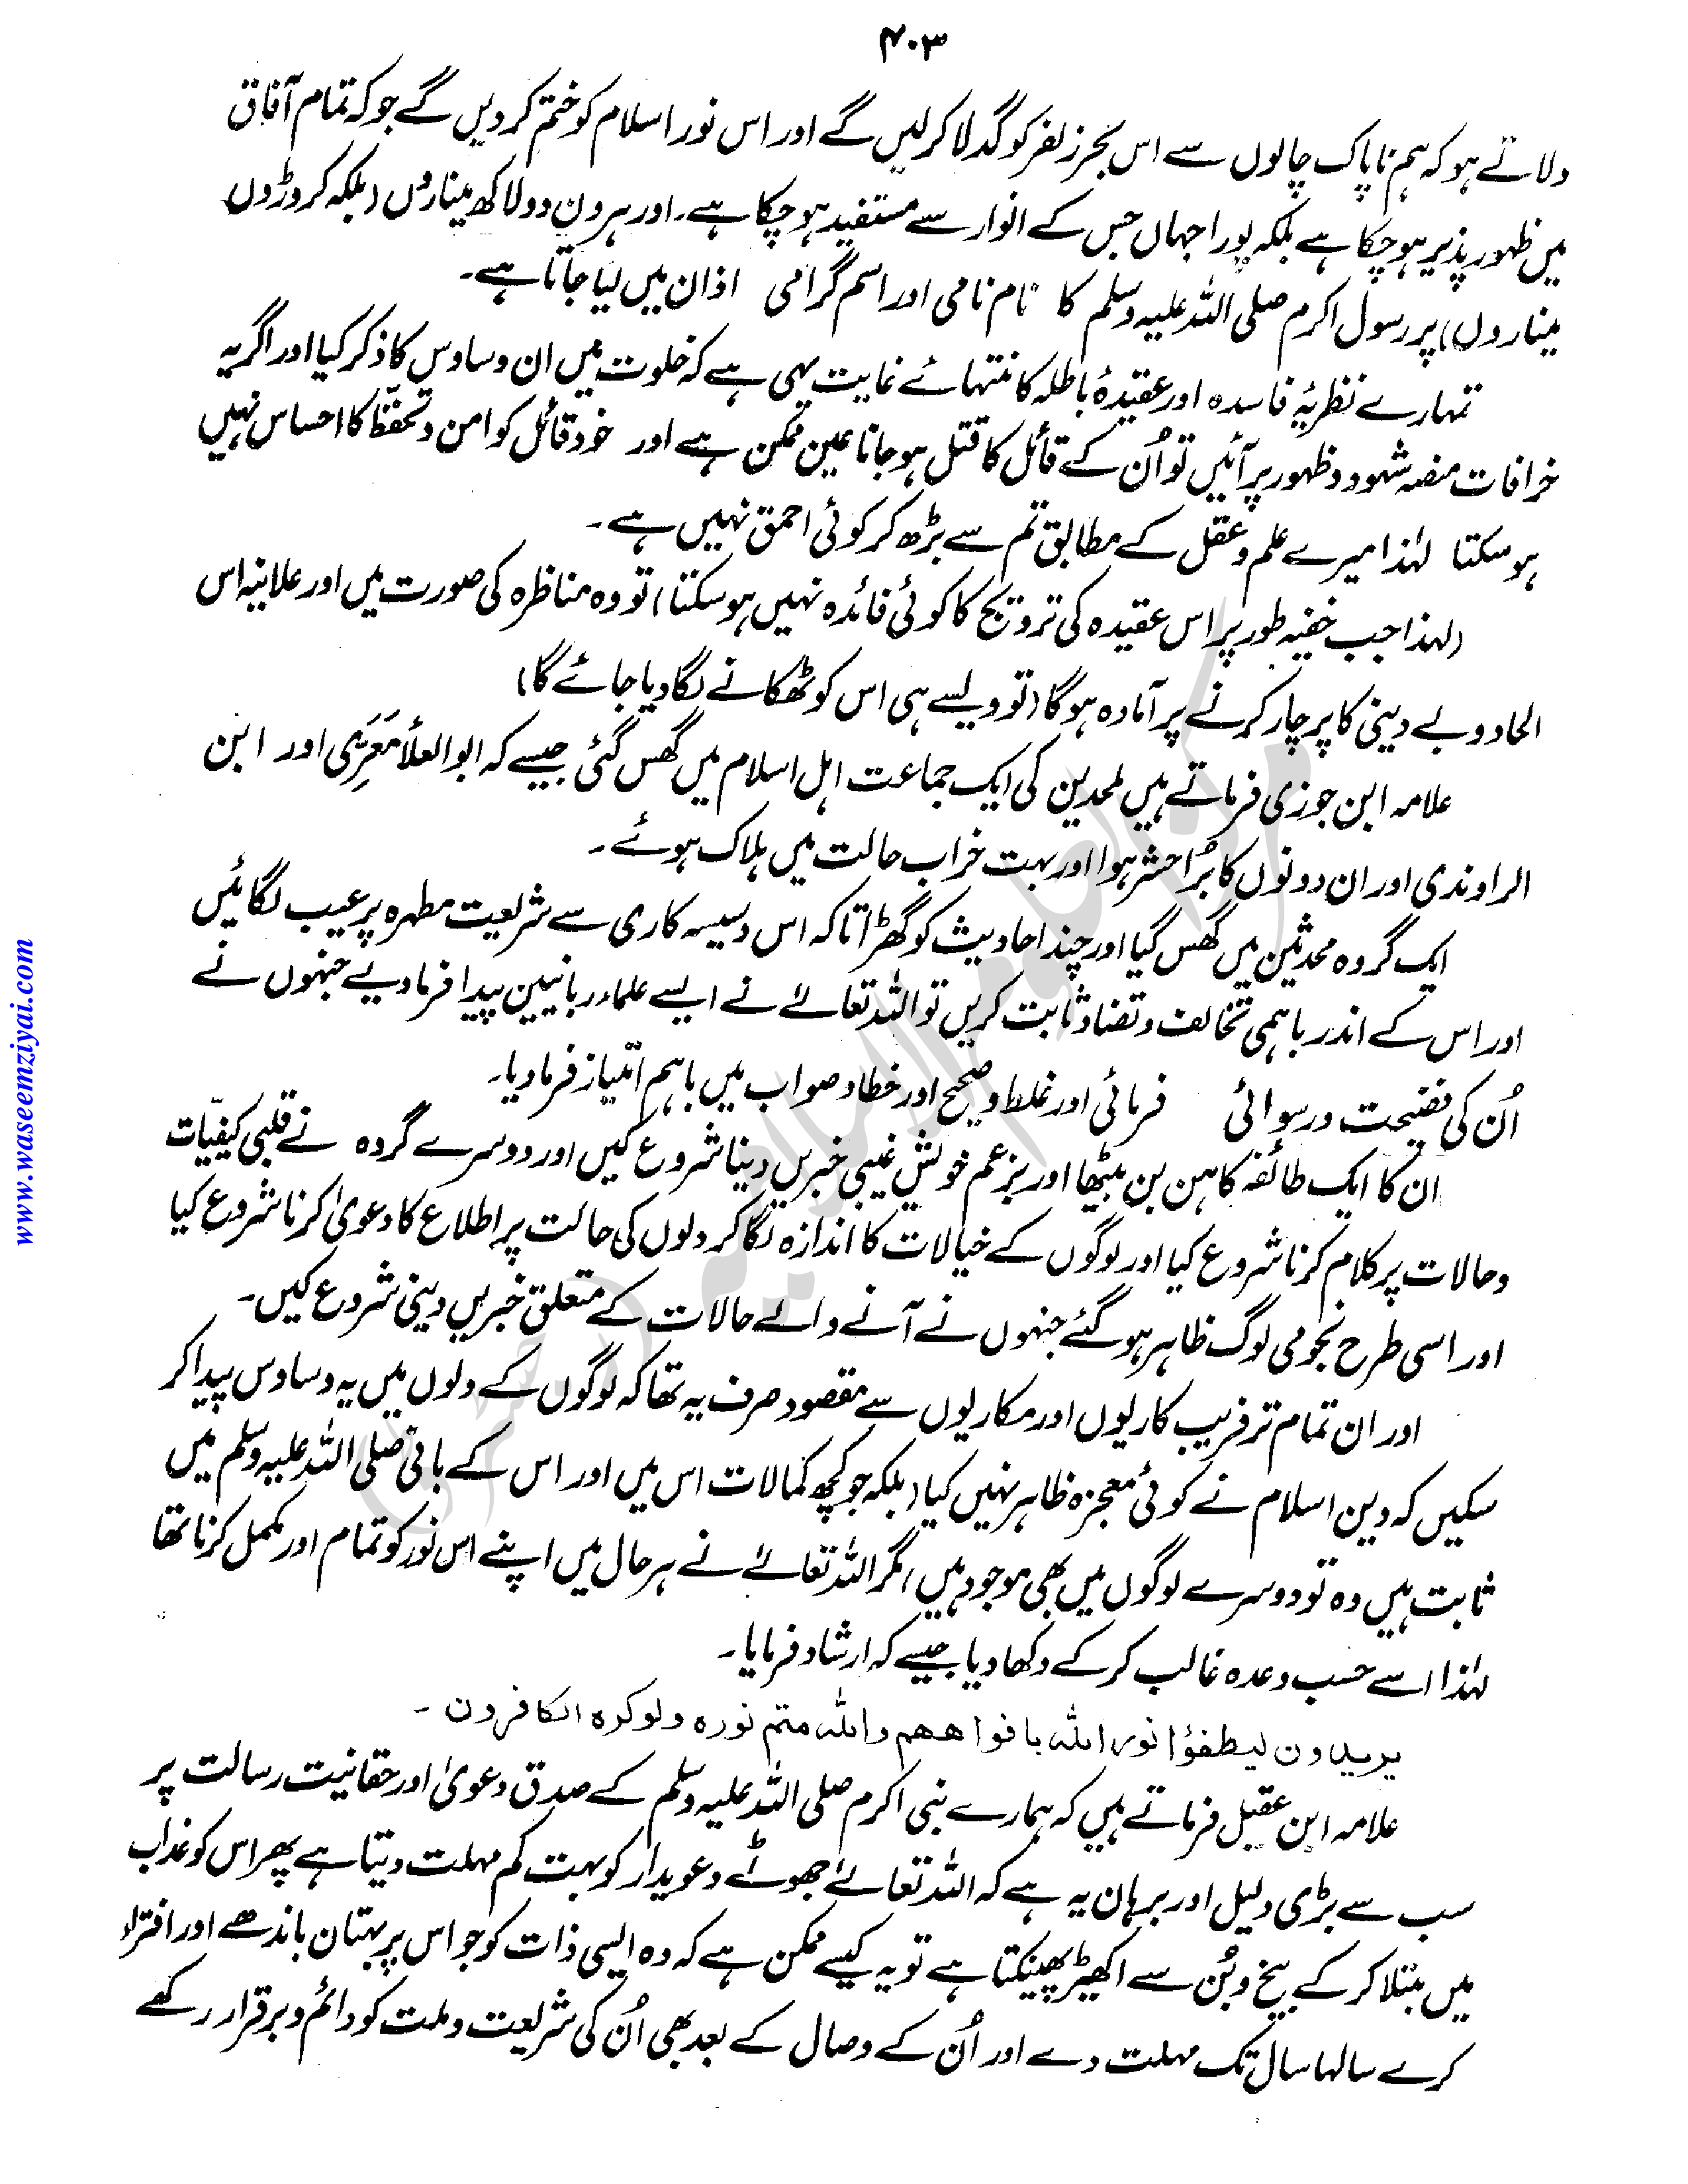 ۴۰۳
دلاتے ہو کہ ہم ناپاک چالوں سے اس بحرِ زلفر کو گدلا کر لیں گے اور اس نور اسلام کو ختم کر دیں گے جو کہ تمام آفاق
میں ظہور پذیر ہو چکا ہے بلکہ پورا جہاں جس کے انوار سے مستفید ہو چکا ہے۔ اور ہر دن دو لاکھ میناروں (بلکہ کروڑوں
میناروں) پر رسول اکرم صلی اللہ علیہ وسلم کا نام نامی اور اسم گرامی اذان میں لیا جاتا ہے۔
تمہارے نظریۂ فاسدہ اور عقیدۂ باطلہ کا منتہائے غایت یہی ہے کہ خلوت میں ان وساوس کا ذکر کیا اور اگر یہ
خرافات منصہ شہود و ظہور پر آئیں تو اُن کے قائل کا قتل ہو جانا عین ممکن ہے اور خود قائل کو امن و تحفظ کا احساس نہیں
ہو سکتا لہٰذا میرے علم و عقل کے مطابق تم سے بڑھ کر کوئی احمق نہیں ہے۔
(لہذا جب خفیہ طور پر اس عقیدہ کی ترویج کا کوئی فائدہ نہیں ہو سکتا) تو وہ مناظرہ کی صورت میں اور علانیہ اس
الحاد و بے دینی کا پرچار کرنے پر آمادہ ہو گا (تو ویسے ہی اس کو ٹھکانے لگا دیا جائے گا)
علامہ ابن جوزی فرماتے ہیں ملحدین کی ایک جماعت اہل اسلام میں گھس گئی جیسے کہ ابوالعلأ مَعَرِّی اور ابن
الراوندی اور ان دونوں کا بُرا حشر ہوا اور بہت خراب حالت میں ہلاک ہوئے۔
ایک گروہ محدثین میں گھس گیا اور چند احادیث کو گھڑا تاکہ اس دسیسہ کاری سے شریعت مطہرہ پر عیب لگائیں
اور اس کے اندر باہمی تخالف و تضاد ثابت کریں تو اللہ تعالےٰ نے ایسے علماء ربانیین پیدا فرما دیے جنہوں نے
اُن کی فضیحت و رسوائی فرمائی اور غلط و صحیح اور خطا و صواب میں باہم امتیاز فرما دیا۔
ان کا ایک طائفہ کاہن بن بیٹھا اور بزعم خویش غیبی خبریں دینا شروع کیں اور دوسرے گروہ نے قلبی کیفیّات
و حالات پر کلام کرنا شروع کیا اور لوگوں کے خیالات کا اندازہ لگا کر دلوں کی حالت پر اطلاع کا دعویٰ کرنا شروع کیا
اور اسی طرح نجومی لوگ ظاہر ہو گئے جنہوں نے آنے والے حالات کے متعلق خبریں دینی شروع کیں۔
اور ان تمام تر فریب کاریوں اور مکاریوں سے مقصود صرف یہ تھا کہ لوگوں کے دلوں میں یہ وساوس پیدا کر
سکیں کہ دین اسلام نے کوئی معجزہ ظاہر نہیں کیا (بلکہ جو کچھ کمالات اس میں اور اس کے بانی صلی اللہ علیہ وسلم میں
ثابت ہیں وہ تو دوسرے لوگوں میں بھی موجود ہیں) مگر اللہ تعالےٰ نے ہر حال میں اپنے اس نور کو تمام اور مکمل کرنا تھا
لہٰذا اسے حسب وعدہ غالب کر کے دکھا دیا جیسے کہ ارشاد فرمایا۔
یریدون لیطفؤا نور اللہ بافواھھم واللہ متم نورہ ولوکرہ الکافرون۔
علامہ ابن عقیل فرماتے ہیں کہ ہمارے نبی اکرم صلی اللہ علیہ وسلم کے صدق دعویٰ اور حقانیت رسالت پر
سب سے بڑی دلیل اور برہان یہ ہے کہ اللہ تعالےٰ جھوٹے دعویدار کو بہت کم مہلت دیتا ہے پھر اس کو عذاب
میں مبتلا کر کے بیخ و بُن سے اکھیڑ پھینکتا ہے تو یہ کیسے ممکن ہے کہ وہ ایسی ذات کو جو اس پر بہتان باندھے اور افتراء
کرے سالہا سال تک مہلت دے اور اُن کے وصال کے بعد بھی اُن کی شریعت و ملت کو دائم و برقرار رکھے
www.waseemziyai.com